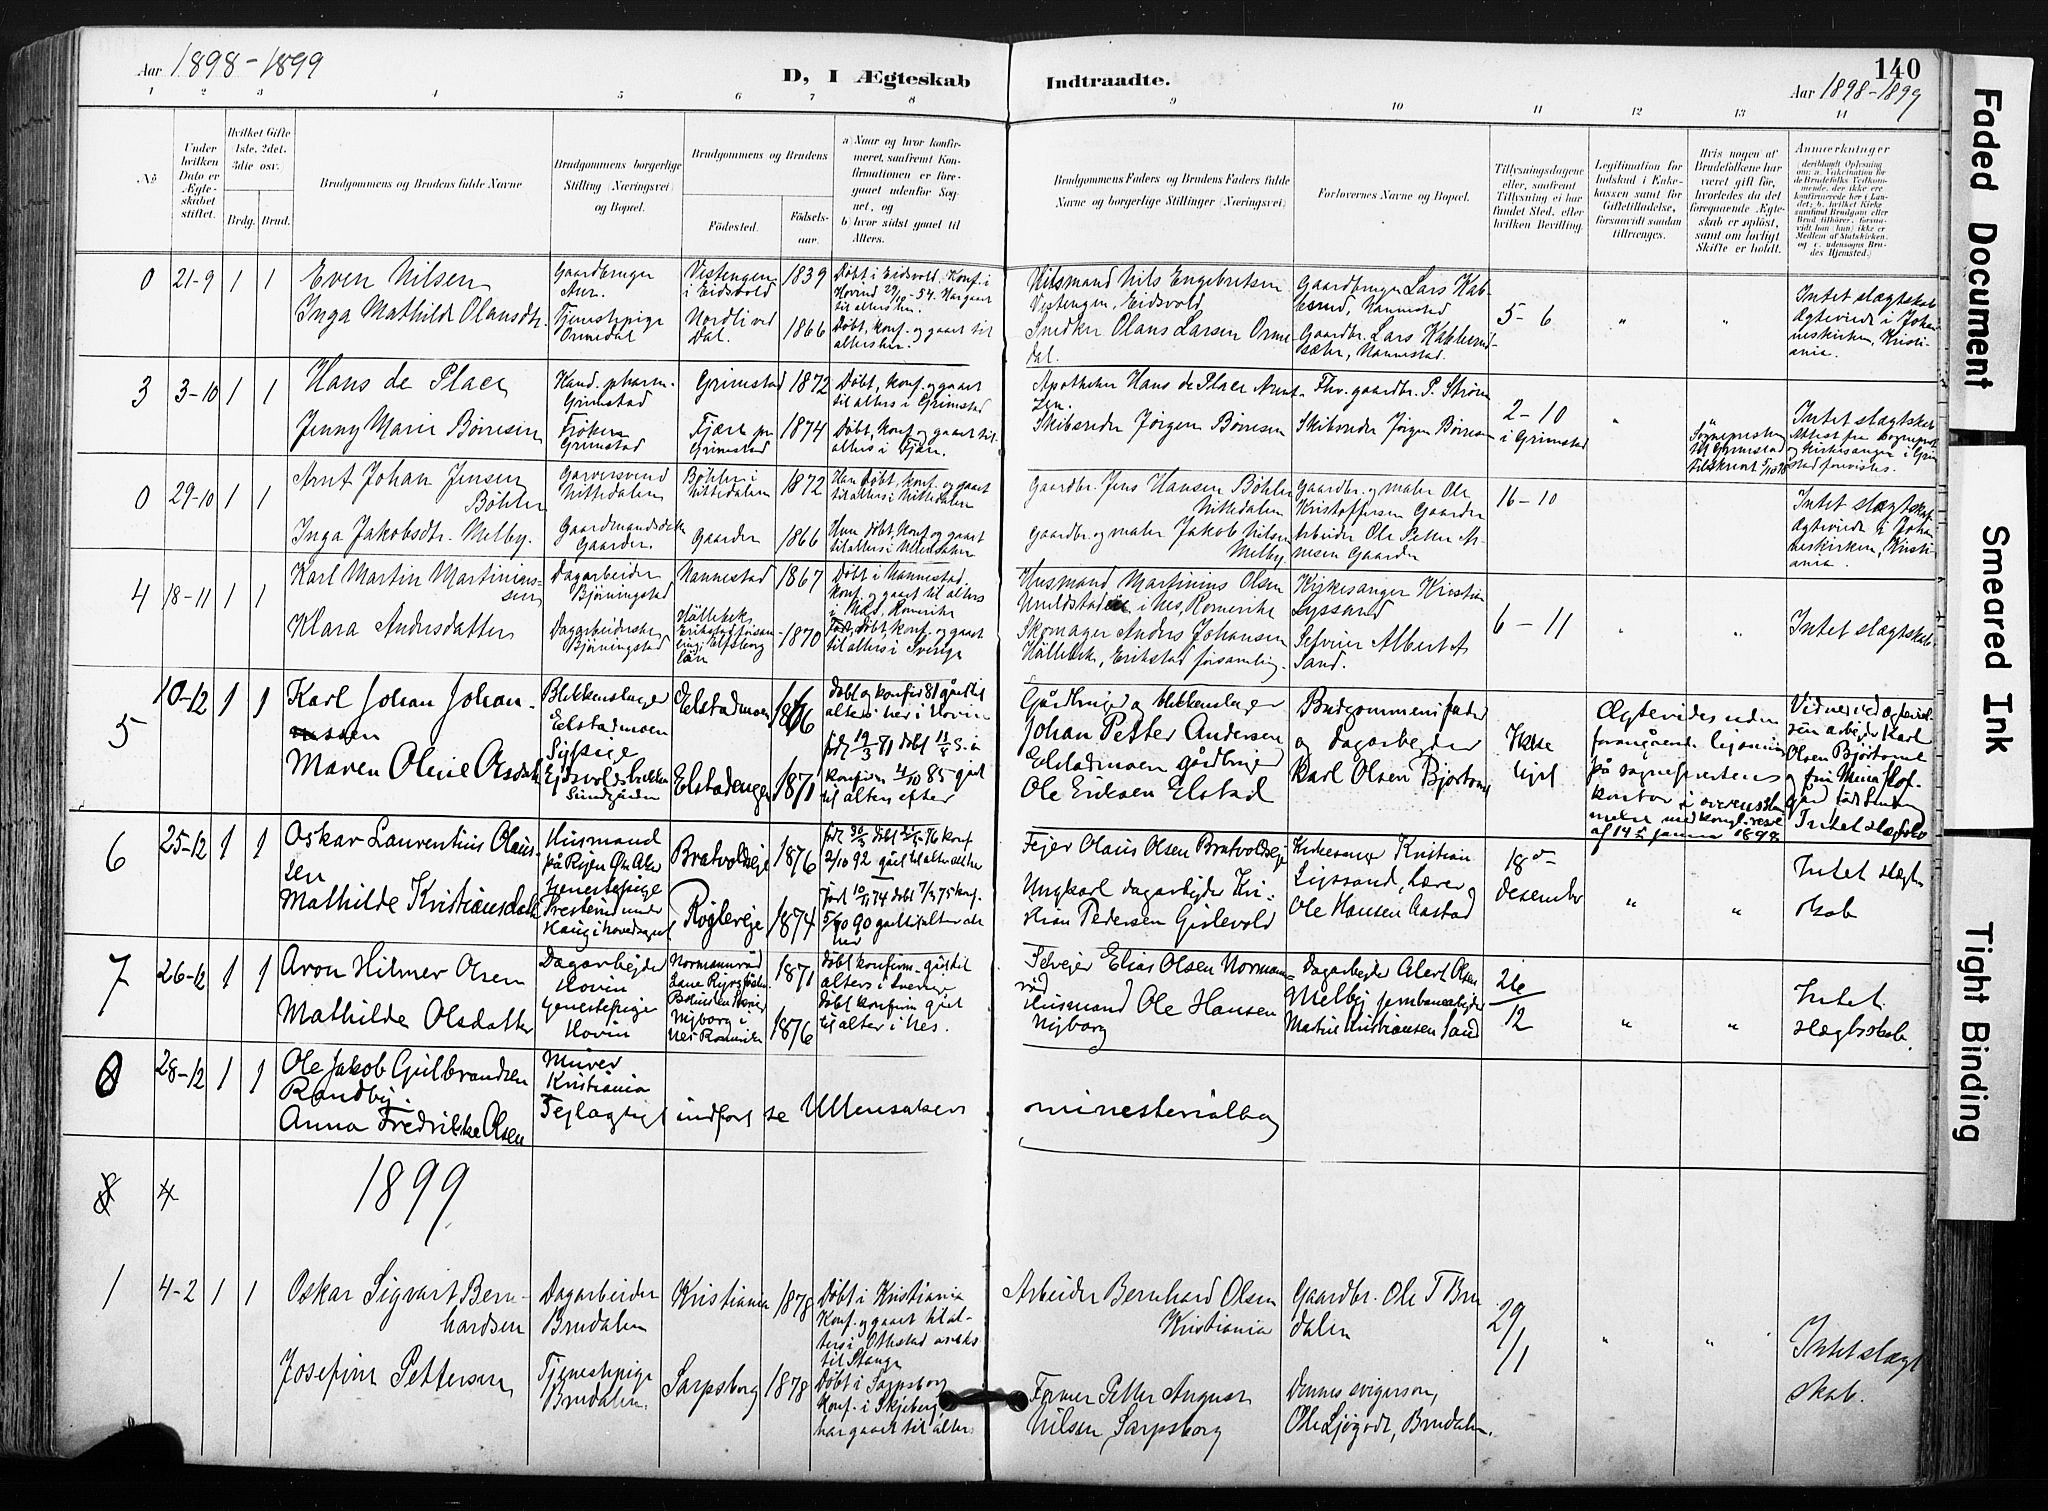 Aar 1898-1899
D, I Ægteskab Indtraadte.
140
Aar 1898-1899
1 2 3 4 5 6 7 8 9 10 11 12 13 14
No
Under hvilken Dato er Ægteskabet stiftet.
Hvilket Gifte 1ste, 2det, 3die osv.
Brdg. Brud.
Brudgommens og Brudens fulde Navne
Brudgommens borgerlige Stilling (Næringsvei) og Bopæl.
Brudgommens og Brudens
Fødested.
Fødselsaar.
a) Naar og hvor konfirmeret, saafremt Konfirmationen er foregaaet udenfor Sognet, og
b) hvor sidst gaaet til Alters.
Brudgommens Faders og Brudens Faders fulde Navne og borgerlige Stillinger (Næringsvei)
Forlovernes Navne og Bopæl.
Tillysningsdagene eller, saafremt Tillysning ei har fundet Sted, efter hvilken Bevilling.
Legitimation for Indskud i Enkekassen samt for Giftetilladelse, forsaavidt saadan tiltrænges.
Hvis nogen af Brudefolkene har været gift før, hvorledes da det foregaaende Ægteskab er opløst, samt om lovligt Skifte er holdt.
Anmærkninger
0 21-9 1 1
Even Nilsen
Gaardbruger
Vestengen i Eidsvold
1839
Døbt i Eidsvold, Konf. i Hovind
Nils Engebretsen Vestengen, Eidsvold
Gaardbruger Lars
Nannestad
5-6
Inga Mathilde Olausdtr.
Tjenestepige Ormedal
Nordli ved Dal.
1866
Døbt, konf. og gaaet til alters her.
Olaus Larsen Ormedal.
Gaardbr. Lars
Nannestad.
Intet slægtskab
Ægteviede i Johanneskirken, Kristiania.
3 3-10 1 1
Hans de Placer
Kand. pharm. Grimstad
Grimstad
1872
Døbt, konf. og gaaet til alters i Grimstad
Apotheker Hans de Placer
Fhv. gaardbr. P. Strøm
2-10 i Grimstad
Jenny Marie Børresen
Frøken Grimstad
Fjære pr Grimstad
1874
Døbt, konf. og gaaet til alters i Fjære.
Skibsreder Jørgen Børresen
Skibsreder Jørgen Børresen
Intet slægtskab
0 29-10 1 1
Arnt Johan Jensen Bøhler
Garversvend Nittedalen
Bøhler i Nittedalen
1872
Han døbt, konf. og gaaet til alters i Nittedalen
Gaardbr. Jens Hansen Bøhler Nittedalen
Gaardbr. og maler Ole Kristoffersen Gaarder
16-10
Inga Jakobsdtr. Melby.
Gaarder.
Gaarder
1866
Hun døbt, konf. og gaaet til alters i Ullensaker
Gaardbr. og maler Jakob Nilsen Melby.
Arbeider Ole Petter Arnesen Gaarder
Intet slægtskab
Ægteviede i Johanneskirken, Kristiania
4 18-11 1 1
Karl Martin Martiniussen
Dagarbeider Bjørningstad
Nannestad
1867
Døbt i Nannestad, konf. og gaaet til alters i Næs, Romerike
Husmand Martinius Olsen
i Nes, Romerike
Kirkesanger Kristian Lyssand
6-11
Klara Andersdatter
Dagarbeiderske Bjørningstad
Hällebek, Erikstad församling, Elfsborg län
1870
Født, døbt, konf. og gaaet til alters i Sverige
Skomager Anders Johansen Hällebek, Erikstad församling.
Selveier Albert A Sand.
Intet slægtskab.
5 10-12 1 1
Karl Johan Johansen
Blikkenslager Eelstadmoen
Eelstadmoen
1866
døbt og konfir 81 gåt til alters i her i Hovin
Gårdbruger og blikkenslager Johan Petter Andersen Eelstadmoen
Brudgommens fader og dagarbejder Karl Olsen Bjørtomt
Maren Oline Olsdatter
Sypige Ejdsvoldsbakken Sundgården
Eelstadengen
1871
født 19/3 71 døbt
konfirm 4/10 85 gåt til alters efter
gårdbruger Ole Eriksen Elstad
Ikke lyst
Ægtevides uden forangående lysning på sognepræstens kontor i overensstemmelse med kongl. resol af 14 januar 1898
Vidner ved ægtevielsen arbejder Karl Olsen Bjørtomt og fru Mina Hofgård
Intet slægtskab
6 25-12 1 1
Oskar Laurentius Olaussen
Husmand
Bratvoldseje
1876
2/10 92 gået til alters her
Fejer Olaus Olsen Bratvoldseje
Kirkesanger Kristian Lyssand, Lærer Ole Hansen Aastad
18de desember
Mathilde Kristiansdatter
tjenestepige
Røgleeje
1874
5/10 90 gåt til alters her
Ungkarl dagarbejder Kristian Pedersen Gislevold
Intet slægtskab
7 26-12 1 1
Aron Hilmer Olsen
Dagarbejder Hovin
1871
døbt konfirm. gåt til alters i Sverige
Selvejer Elias Olsen Normansrød
Dagarbejder Albert Olsen Melby
26/12
Mathilde Olsdatter
tjenestepige Hovin
Nyborg i Nes Romerike
1876
Døbt konfirm gåt til alter i Nes.
Husmand Ole Hansen Nyborg
jernbanearbejder Martin Kristiansen Sand
Intet slægtskab.
0 28-12 1 1
Ole Jakob Gulbrandsen Randby.
Murer Kristiania
Anna Fredrikke Olsen
Fejlagtigt indført se Ullensakers ministerialbog
1899
1 4-2 1 1
Oskar Sigvart Bernhardsen
Dagarbeider Brudalen
Kristiania
1878
Døbt i Kristiania Konf. og gaaet til alters i Ottestad anneks til Stange
Arbeider Bernhard Olsen Kristiania
Gaardbr. Ole T Brudalen
29/1
Josefine Pettersen
Tjenestepige Brudalen.
Sarpsborg
1878
Døbt i Sarpsborg Konf. i Skjeberg, har gaaet til alters
Former Petter August Nilsen, Sarpsborg
Dennes svigersøn, Ole Ljøgodt, Brudalen.
Intet slægtskab.
Faded Document
Smeared Ink
Tight Binding